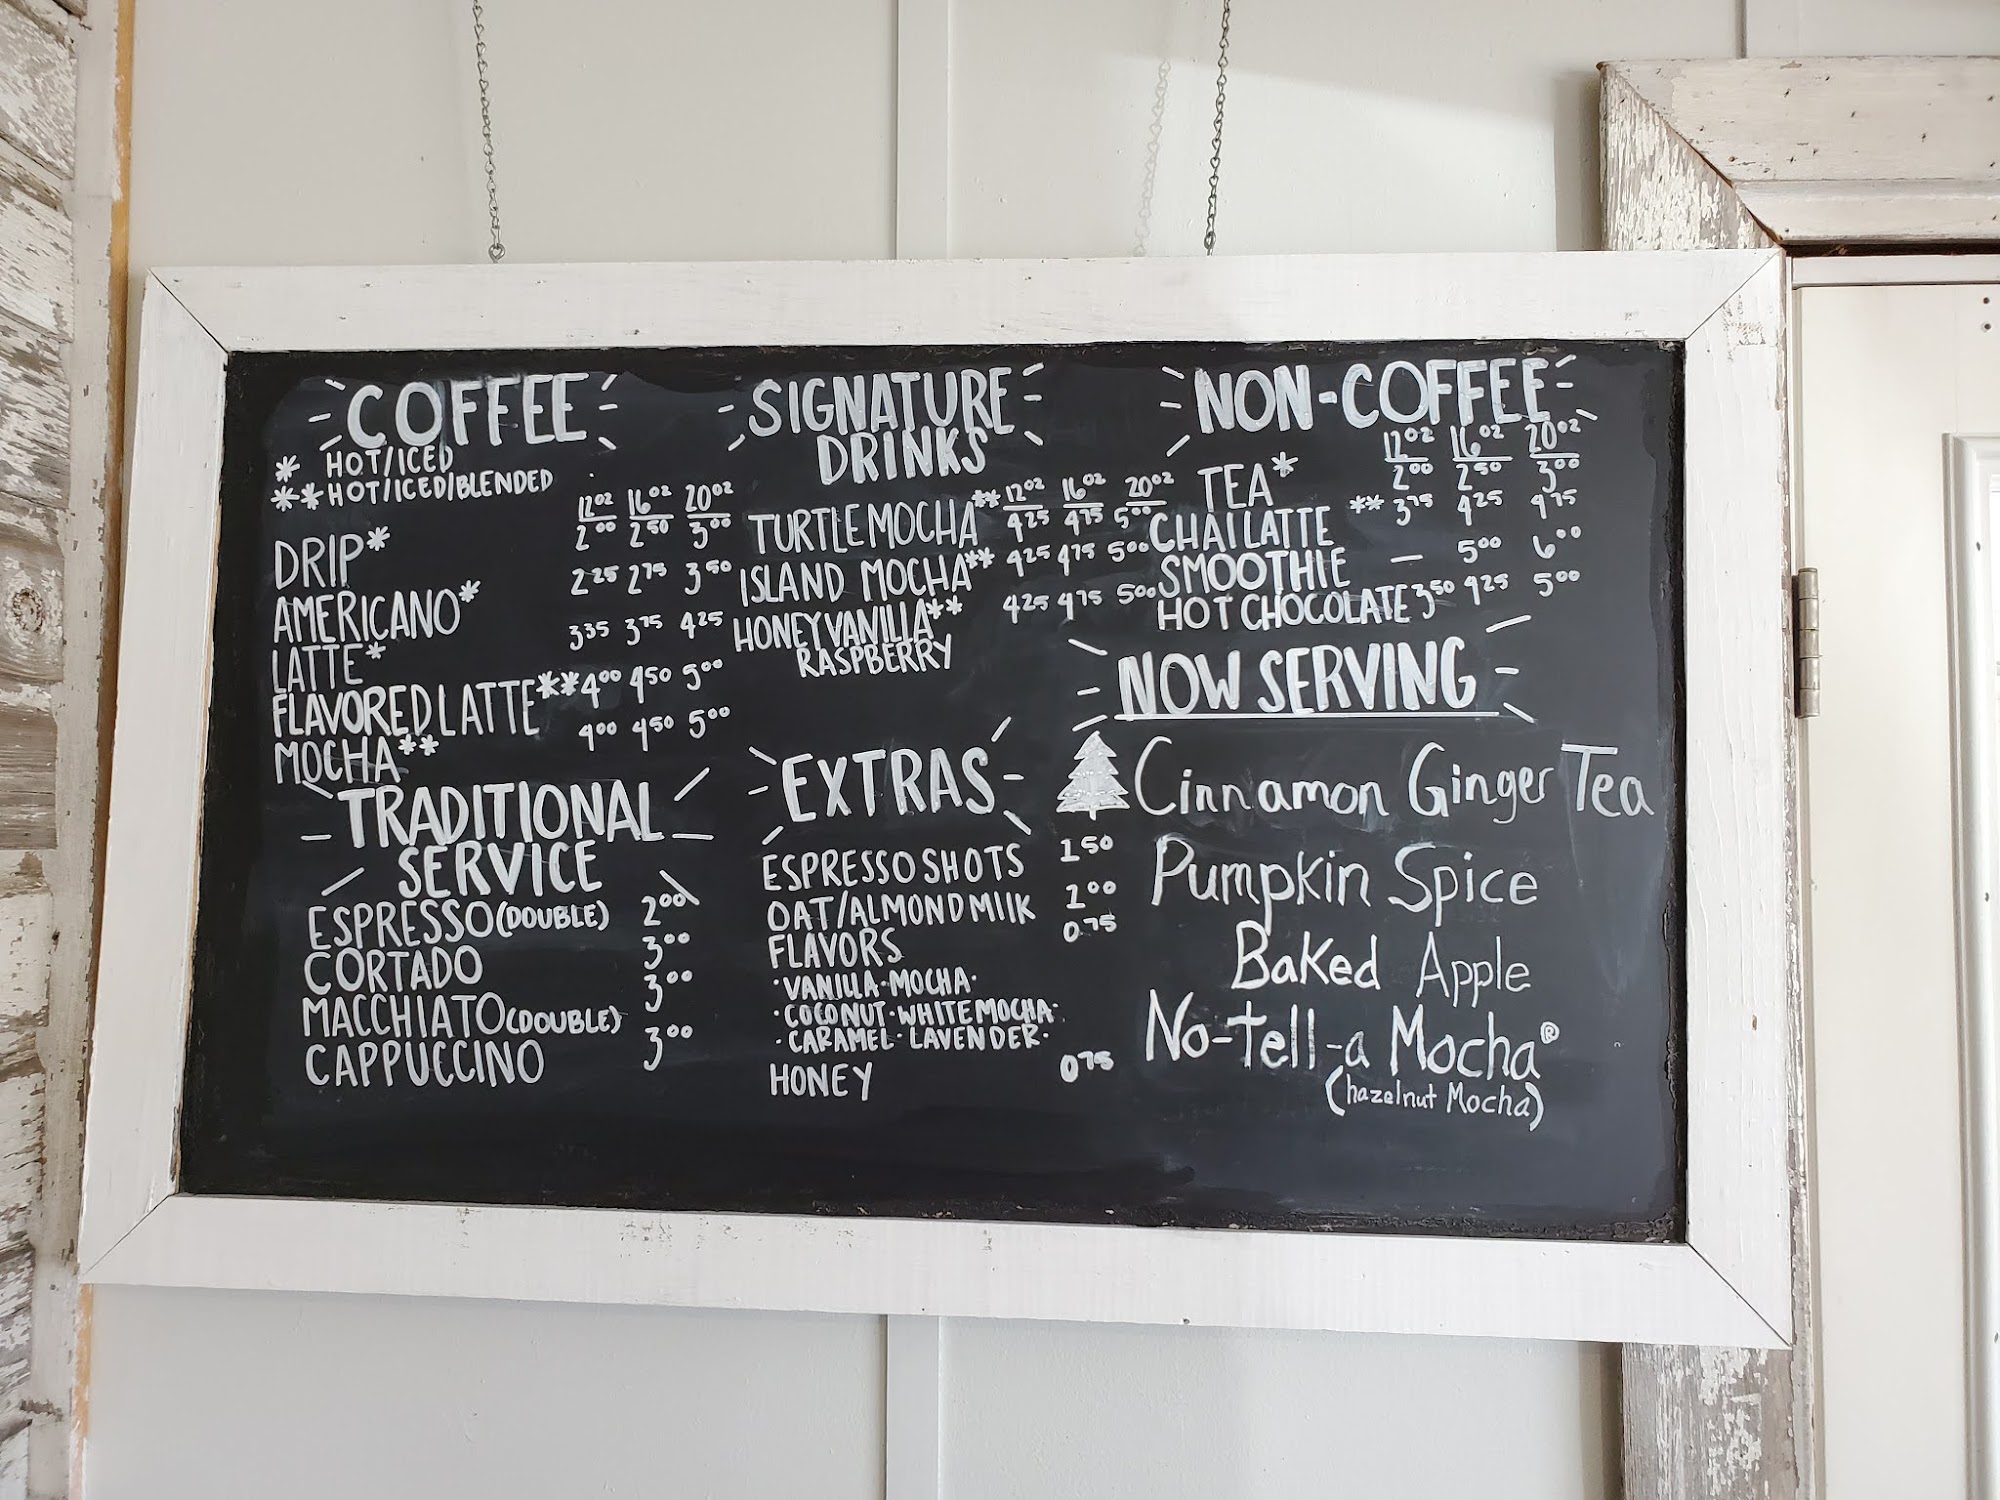 COFFEE
* HOT/ICED
** HOT/ICED/BLENDED
12oz 16oz 20oz
DRIP* 2.00 2.50 3.00
AMERICANO* 2.25 2.75 3.50
LATTE* 3.35 3.75 4.25
FLAVORED LATTE** 4.00 4.50 5.00
MOCHA** 4.00 4.50 5.00
TRADITIONAL
SERVICE
ESPRESSO (DOUBLE) 2.00
CORTADO 3.00
MACCHIATO (DOUBLE) 3.00
CAPPUCCINO 3.00
SIGNATURE
DRINKS
12oz 16oz 20oz
TURTLE MOCHA** 4.25 4.75 5.00
ISLAND MOCHA** 4.25 4.75 5.00
HONEY VANILLA** 4.25 4.75 5.00
RASPBERRY
EXTRAS
ESPRESSO SHOTS 1.50
OAT/ALMOND MILK 2.00
FLAVORS 0.75
·VANILLA·MOCHA·
·COCONUT·WHITE MOCHA·
·CARAMEL·LAVENDER·
HONEY 0.75
NON-COFFEE
12oz 16oz 20oz
TEA* 2.00 2.50 3.00
CHAI LATTE ** 3.75 4.25 4.75
SMOOTHIE — 5.00 6.00
HOT CHOCOLATE 3.50 4.25 5.00
NOW SERVING
Cinnamon Ginger Tea
Pumpkin Spice
Baked Apple
No-tell-a Mocha®
(hazelnut Mocha)